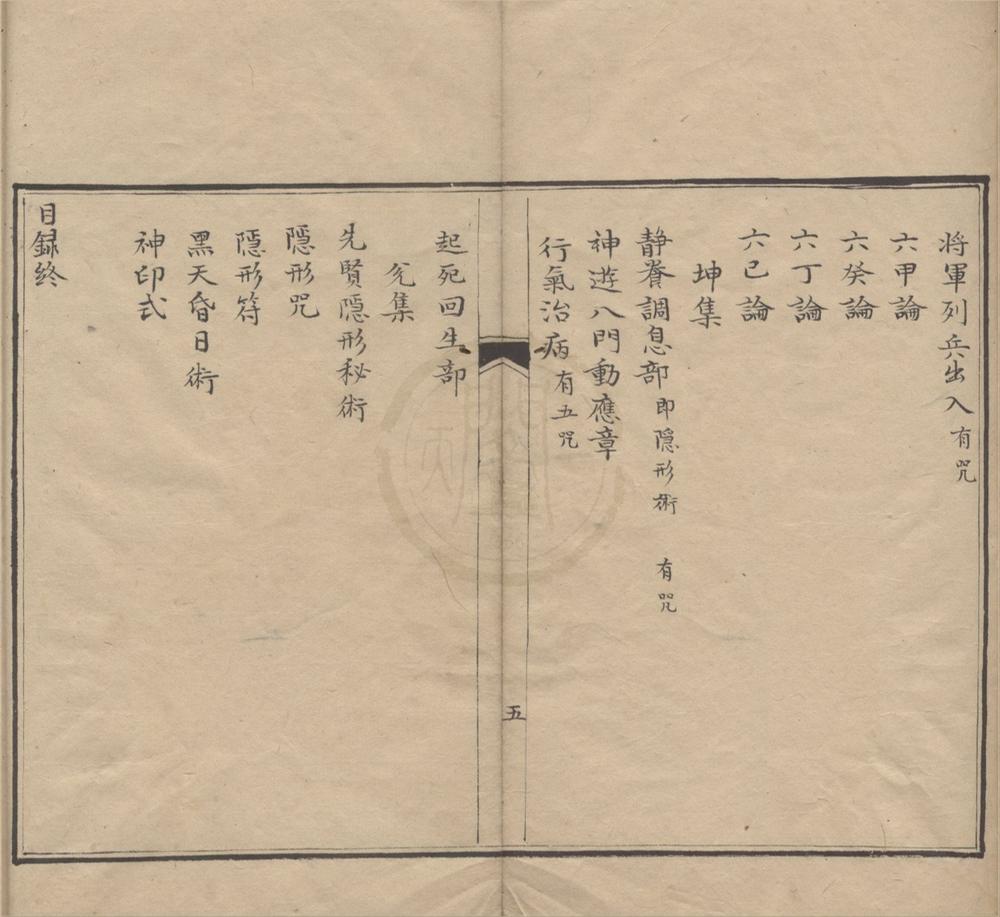 将軍列兵出入有咒
六甲論
六癸論
六丁論
六己論
坤集
静養調息部即隱形術 有咒
神遊八門動應章
行氣治病有五咒
五
起死回生部
兊集
先賢隱形秘術
隱形咒
隱形符
黑天昏日術
神印式
目録終